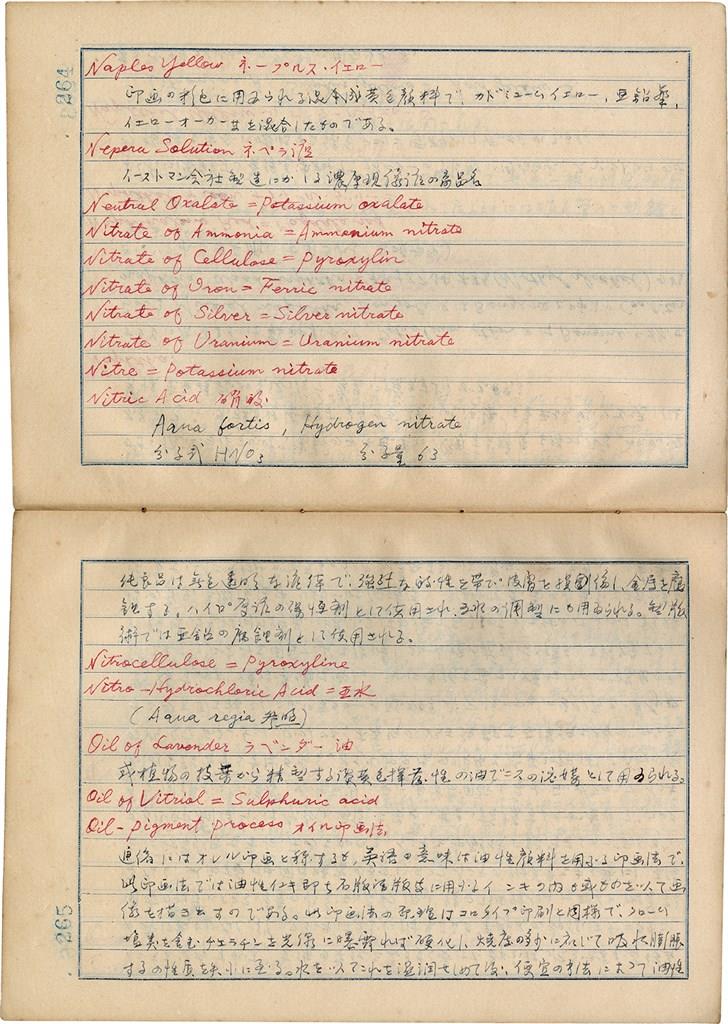 264
Naples Yellow ネープルス・イエロー
印画の着色に用ゐられる混成黄色顔料で、カドミュームイエロー、亜鉛華、
イエローオーカー等を混合したものである。
Nepera Solution ネペラ液
イーストマン会社製造にかゝる濃厚現像液の商品名
Neutral Oxalate = Potassium oxalate
Nitrate of Ammonia = Ammonium nitrate
Nitrate of Cellulose = Pyroxylin
Nitrate of Iron = Ferric nitrate
Nitrate of Silver = Silver nitrate
Nitrate of Uranium = Uranium nitrate
Nitre = Potassium nitrate
Nitric Acid 硝酸
Aqua fortis, Hydrogen nitrate
分子式 HNO₃ 分子量 63
純良品は無色透明な液体で、強烈な酸性を帯び皮膚を損傷し、金属を腐
蝕する。ハイポ廃液の
として使用され、王水の調製にも用ゐられる。製版
術では亜鉛の腐蝕剤として使用される。
Nitrocellulose = Pyroxyline
Nitro-Hydrochloric Acid = 王水
(Aqua regia 参照)
Oil of Lavender ラベンダー油
或植物の枝葉から精製する淡黄色揮発性の油でニスの溶媒として用ゐられる。
Oil of Vitriol = Sulphuric acid
Oil-pigment process オイル印画法
通俗にはオイル印画と称するが、英語の意味は油性顔料を用ふる印画法で、
此印画法では油性インキ即ち石版
に用ふるインキの
を以て画
像を描き出すのである。此印画法の原理はコロタイプ印刷と同様で、クローム
塩類を含むゼラチンを光線に曝露すれば硬化し、
度の多少に応じて吸水膨脹
するの性質を
に至る。水を以てこれを湿潤せしめて後、便宜の方法によつて油性
265